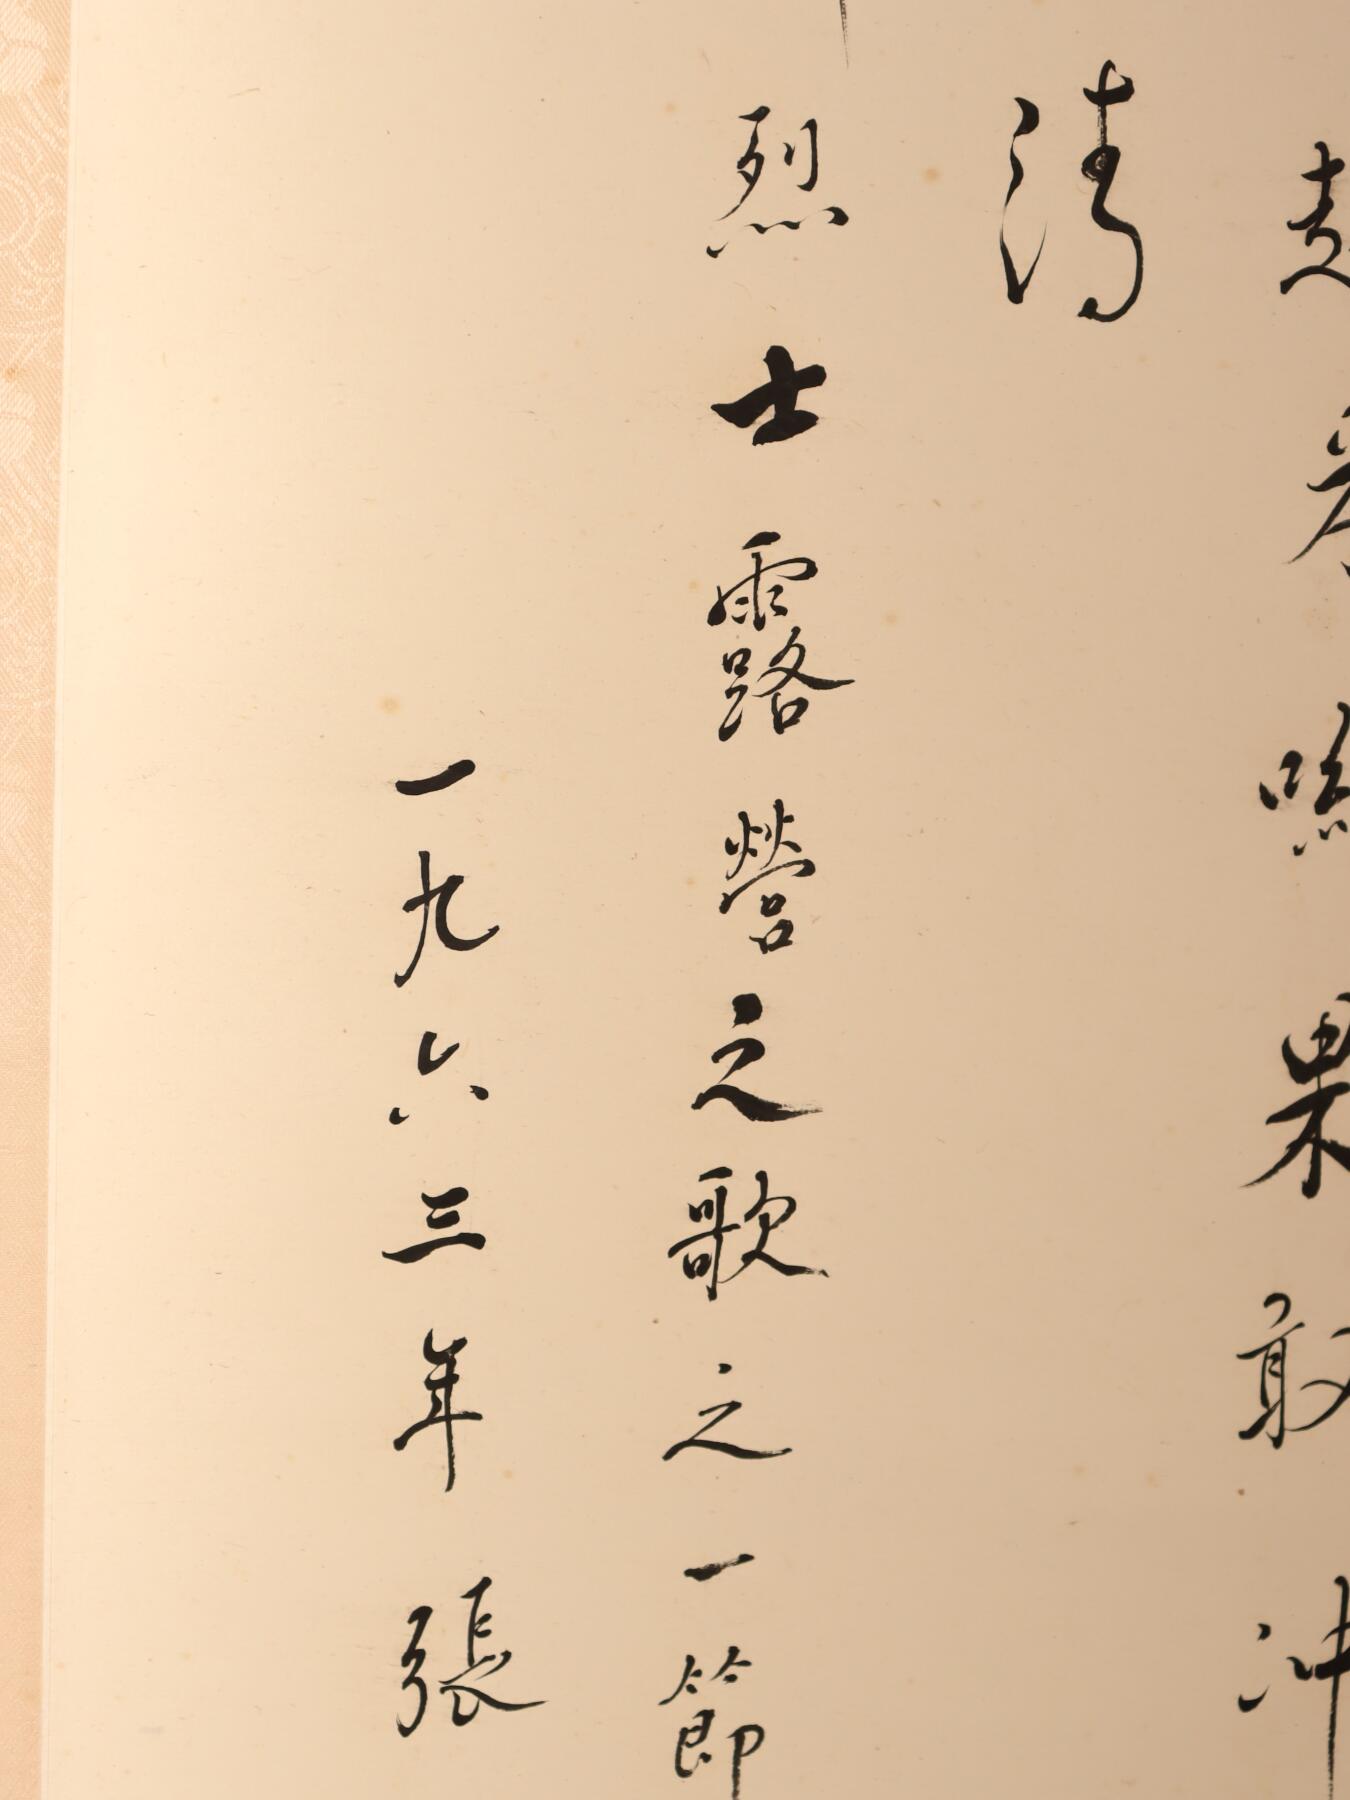 果敢冲
清
烈士露營之歌之一節
一九六三年張